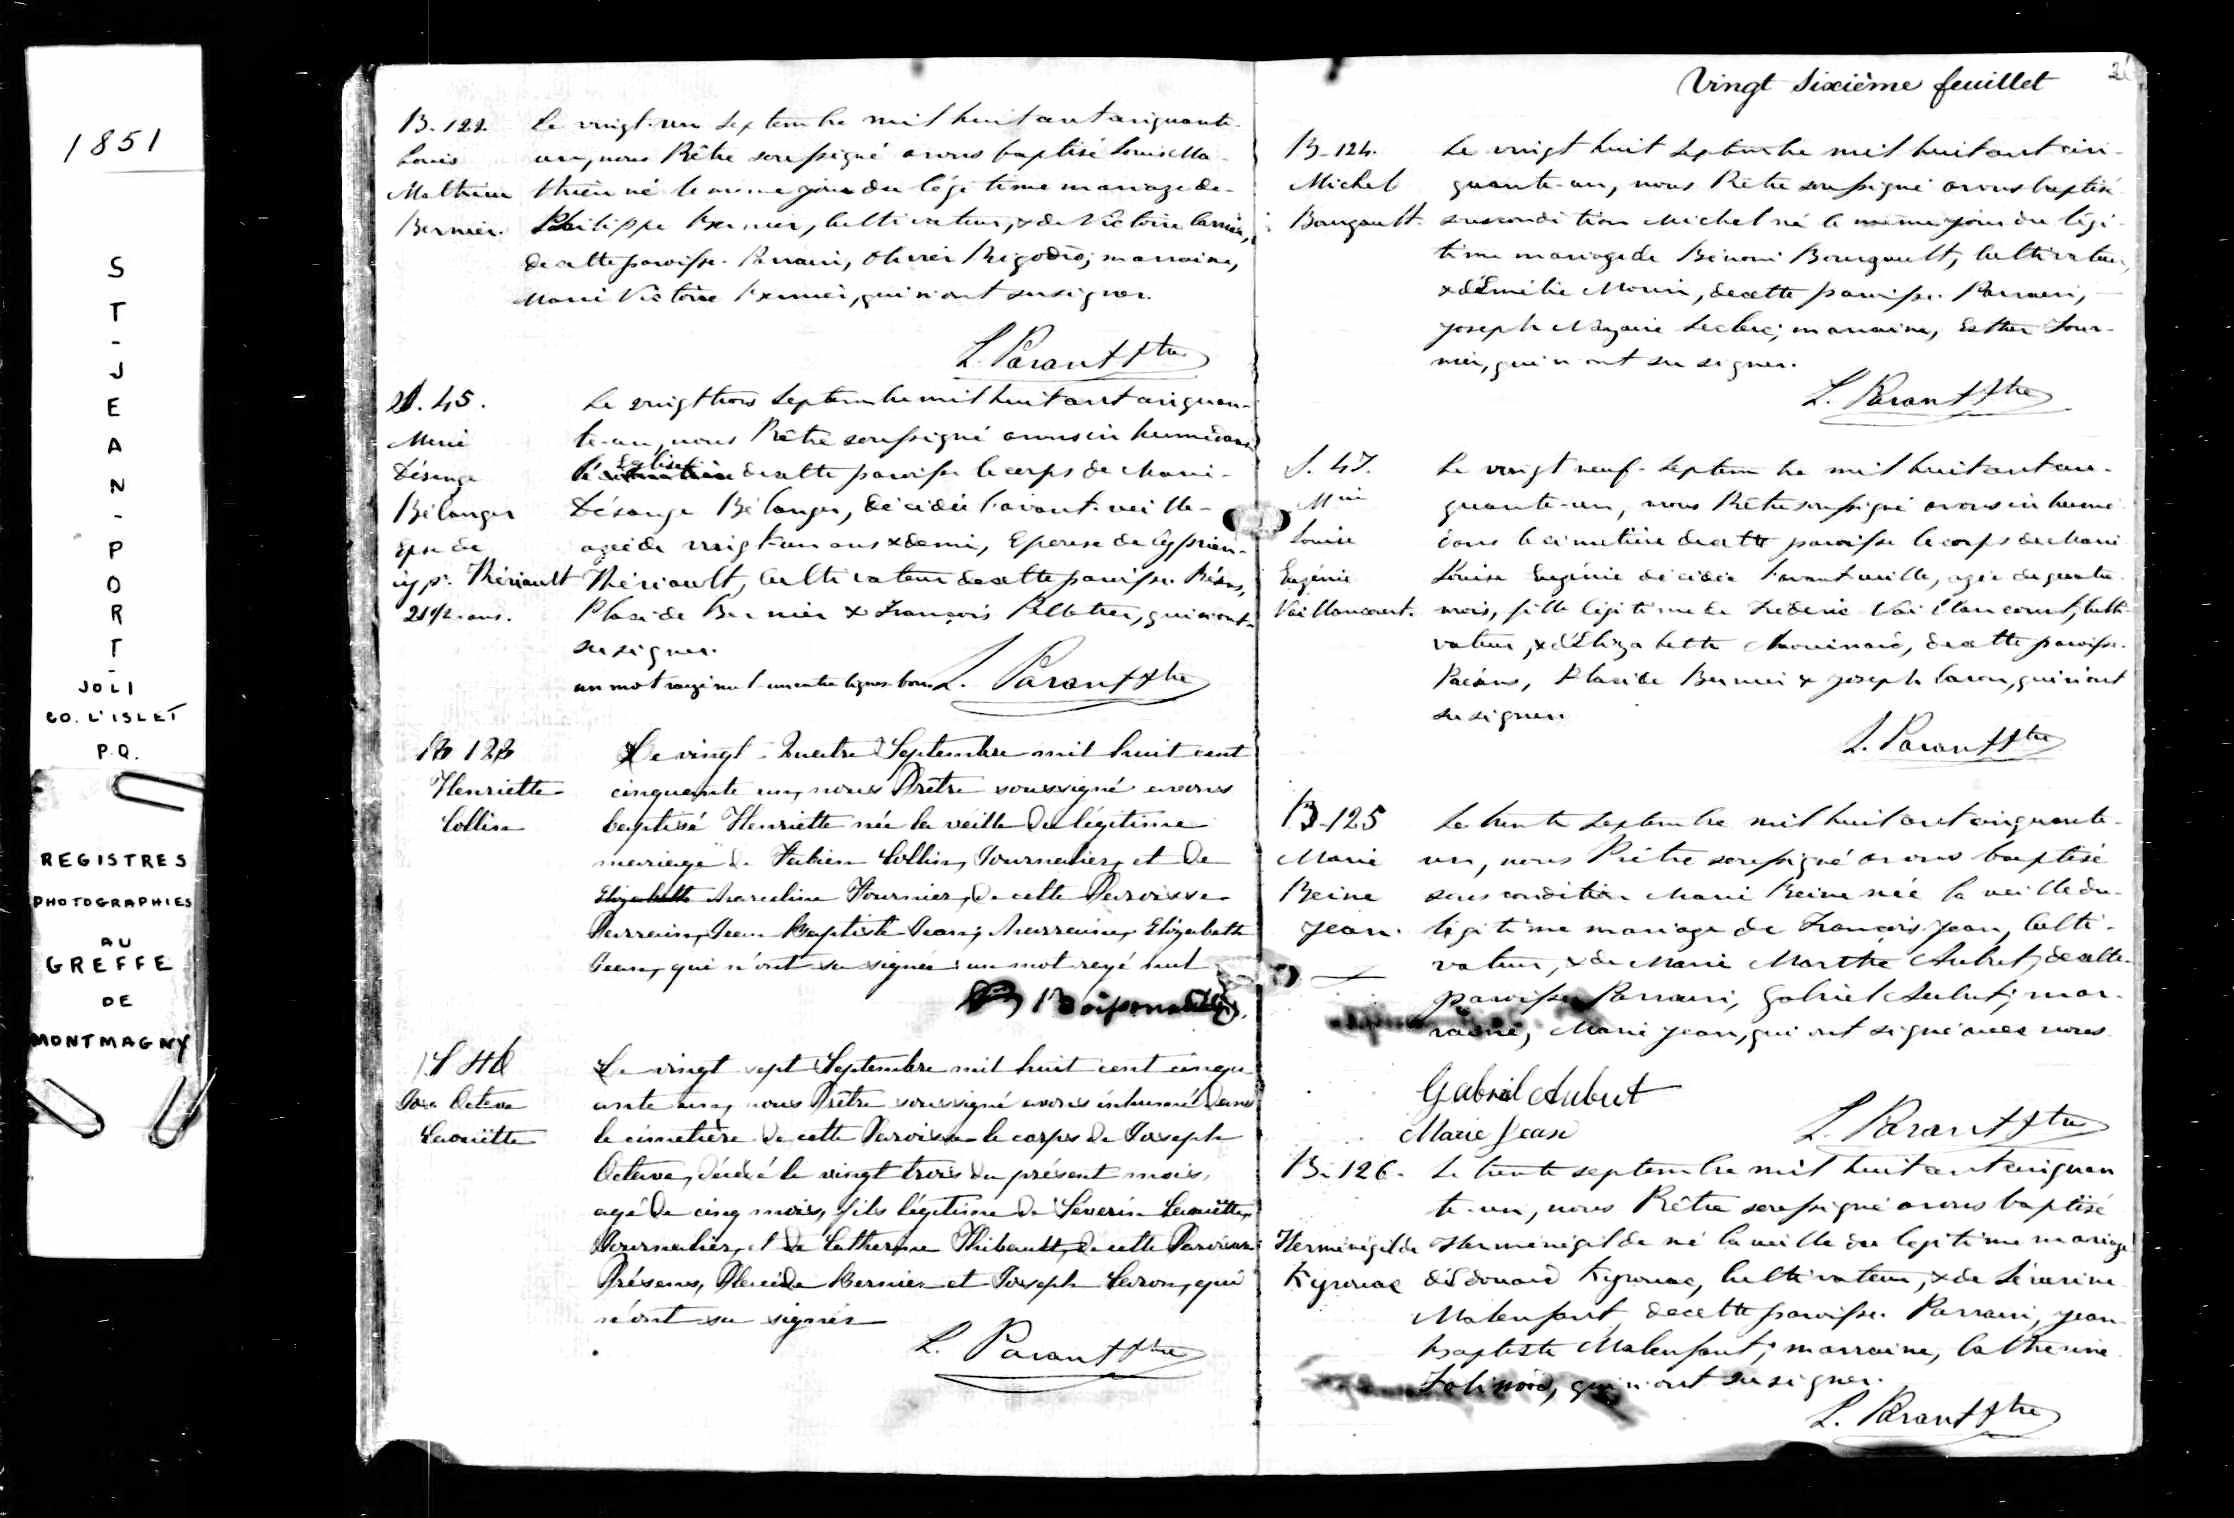 1851
ST-JEAN-PORT-
JOLI
CO. L'ISLET
P.Q.
REGISTRES
PHOTOGRAPHIES
AU
GREFFE
DE
MONTMAGNY
B. 122.
Louis
Mathieu
Bernier.
Le vingt-un Septembre mil huit cent cinquante-
un, nous Prêtre soussigné avons baptisé Louis Ma-
thieu né le même jour du légitime mariage de
Philippe Bernier, Cultivateur, & de Victoire
de cette paroisse. Parrain, Olivier marraine,
Marie Victoire Bernier, qui n'ont su signer.
L. Parant Ptre
S. 45.
Marie
Désange
Bélanger
Epse de
Cyp. Thériault
21 1/2 ans.
Le vingt trois Septembre mil huit cent cinquan-
te-un, nous Prêtre soussigné avons inhumé dans
l'église de cette paroisse le corps de Marie
Désange Bélanger, décédée l'avant-veille
agée de vingt-un ans & demi, Epouse de Cyprien
Thériault, Cultivateur de cette paroisse. Présens,
Placide Bernier & François Pelletier, qui n'ont
su signer.
un mot rayé nul un entre lignes bon L. Parant Ptre
B 123
Henriette
Collin
Le vingt-Quatre Septembre mil huit cent
cinquante un, nous Prêtre soussigné avons
baptisé Henriette née la veille du légitime
mariage de Fabien Collin, Journalier, et de
Elizabeth Marceline Fournier, de cette Paroisse
Parrain, Jean Baptiste Jean; Marraine, Elizabeth
Jean, qui n'ont su signer: un mot rayé nul
S 46
Jos. Octave
Laouëtte
Le vingt sept Septembre mil huit cent cinqu-
ante un, nous Prêtre soussigné avons inhumé dans
le cimetière de cette Paroisse le corps de Joseph
Octave, décédé le vingt trois du présent mois,
agé de cinq mois, fils légitime de Séverin Laouëtte,
Journalier, et de Catherine Thibault, de cette Paroisse
Présens, Placide Bernier et Joseph Caron, qui
n'ont su signer
L. Parant Ptre
Vingt Sixième feuillet
26
B-124.
Michel
Bourgault.
Le vingt huit Septembre mil huit cent cin-
quante-un, nous Prêtre soussigné avons baptisé
sous condition Michel né le même jour du légi-
time mariage de Bénoni Bourgault, Cultivateur,
& d'Emélie Morin, de cette paroisse. Parrain,
Joseph Nazaire Leclerc; marraine, Esther Four-
nier, qui n'ont su signer.
L. Parant Ptre
S. 47.
Marie
Louise
Eugénie
Vaillancourt.
Le vingt neuf Septembre mil huit cent cin-
quante-un, nous Prêtre soussigné avons inhumé
dans le cimetière de cette paroisse le corps de Marie
Louise Eugénie décédée l'avant veille, agée de quatre
mois, fille légitime de Frédéric Vaillancourt, Culti-
vateur, & d'Elizabeth Chouinard, de cette paroisse.
Présens, Placide Bernier & Joseph Caron, qui n'ont
su signer.
L. Parant Ptre
B-125
Marie
Reine
Jean.
Le trente Septembre mil huit cent cinquante-
un, nous Prêtre soussigné avons baptisé
sous condition Marie Reine née la veille du
légitime mariage de François Jean, Culti-
vateur, & de Marie Marthe Aubut, de cette
paroisse. Parrain, Gabriel Aubut; mar-
raine, Marie Jean, qui ont signé avec nous.
Gabriel Aubut
Marie Jean
L. Parant Ptre
B-126.
Herménégilde
Kyrouac
Le trente septembre mil huit cent cinquan
te-un, nous Prêtre soussigné avons baptisé
Herménégilde né la veille du légitime mariage
d'Edouard Kyrouac, Cultivateur, & de Séverine
Malenfant, de cette paroisse. Parrain, Jean
Baptiste Malenfant; marraine, Catherine
qui n'ont su signer.
L. Parant Ptre